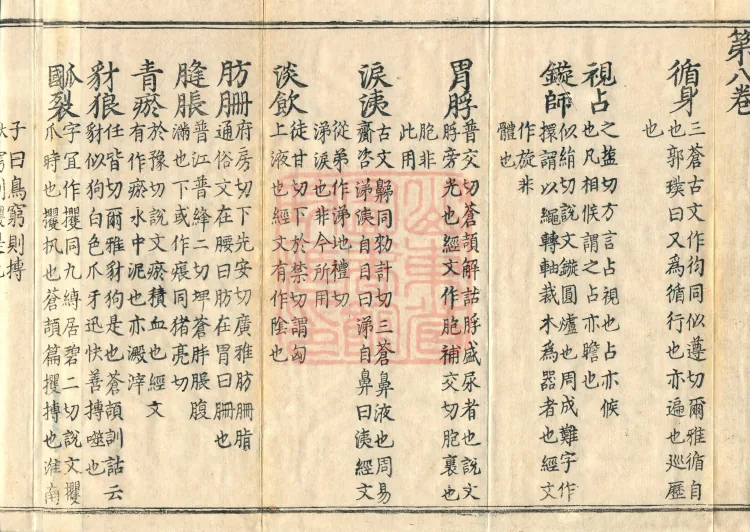 第八卷
循身三蒼古文作徇同似遵切爾雅循自
也郭璞曰又為循行也亦遍也巡歷
也
視占之盐切方言占視也占亦候
也凡相候謂之占亦瞻也
鏇師似絹切說文鏇圓爐也周成難字作
謂以繩轉軸裁木為器者也經文
作旋非
體也
胃脬普交切蒼頡解詁脬盛尿者也說文
脬旁光也經文作胞補交切胞裹也
胞非
此用
淚洟古文同勑計切三蒼鼻液也周易
齎咨涕洟自目曰涕自鼻曰洟經文
從弟作涕他禮切
涕淚也非今所用
淡飲徒甘切下於禁切謂匈
上液也經文有作陰也
肪𦙱府房切下先安切廣雅肪𦙱脂
通俗文在腰曰肪在胃曰𦙱也
膖脹普江普絳二切埤蒼胖脹腹
滿也下或作痕同猪亮切
青瘀於豫切說文瘀積血也經文
有作淤水中泥也亦澱滓
豺狼仕皆切爾雅豺狗是也蒼頡訓詁云
豺似狗白色爪牙迅快善搏噬也
爴裂字宜作攫同九縛居碧二切說文攫
爪時也攫扟也蒼頡篇攫搏也淮南
子曰鳥窮則搏